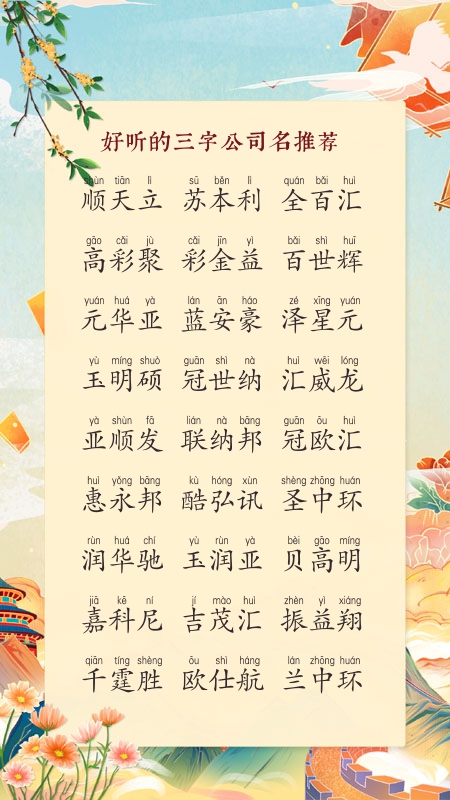 好听的三字公司名推荐
shùn tiān lì sū běn lì quán bǎi huì
顺天立 苏本利 全百汇
gāo cǎi jù cǎi jīn yì bǎi shì huī
高彩聚 彩金益 百世辉
yuán huá yà lán ān háo zé xīng yuán
元华亚 蓝安豪 泽星元
yù míng shuò guān shì nà huì wēi lóng
玉明硕 冠世纳 汇威龙
yà shùn fā lián nà bāng guān ōu huì
亚顺发 联纳邦 冠欧汇
huì yǒng bāng kù hóng xùn shèng zhōng huán
惠永邦 酷弘讯 圣中环
rùn huá chí yù rùn yà bèi gāo míng
润华驰 玉润亚 贝高明
jiā kē ní jí mào huì zhèn yì xiáng
嘉科尼 吉茂汇 振益翔
qiān tíng shèng ōu shì háng lán zhōng huán
千霆胜 欧仕航 兰中环